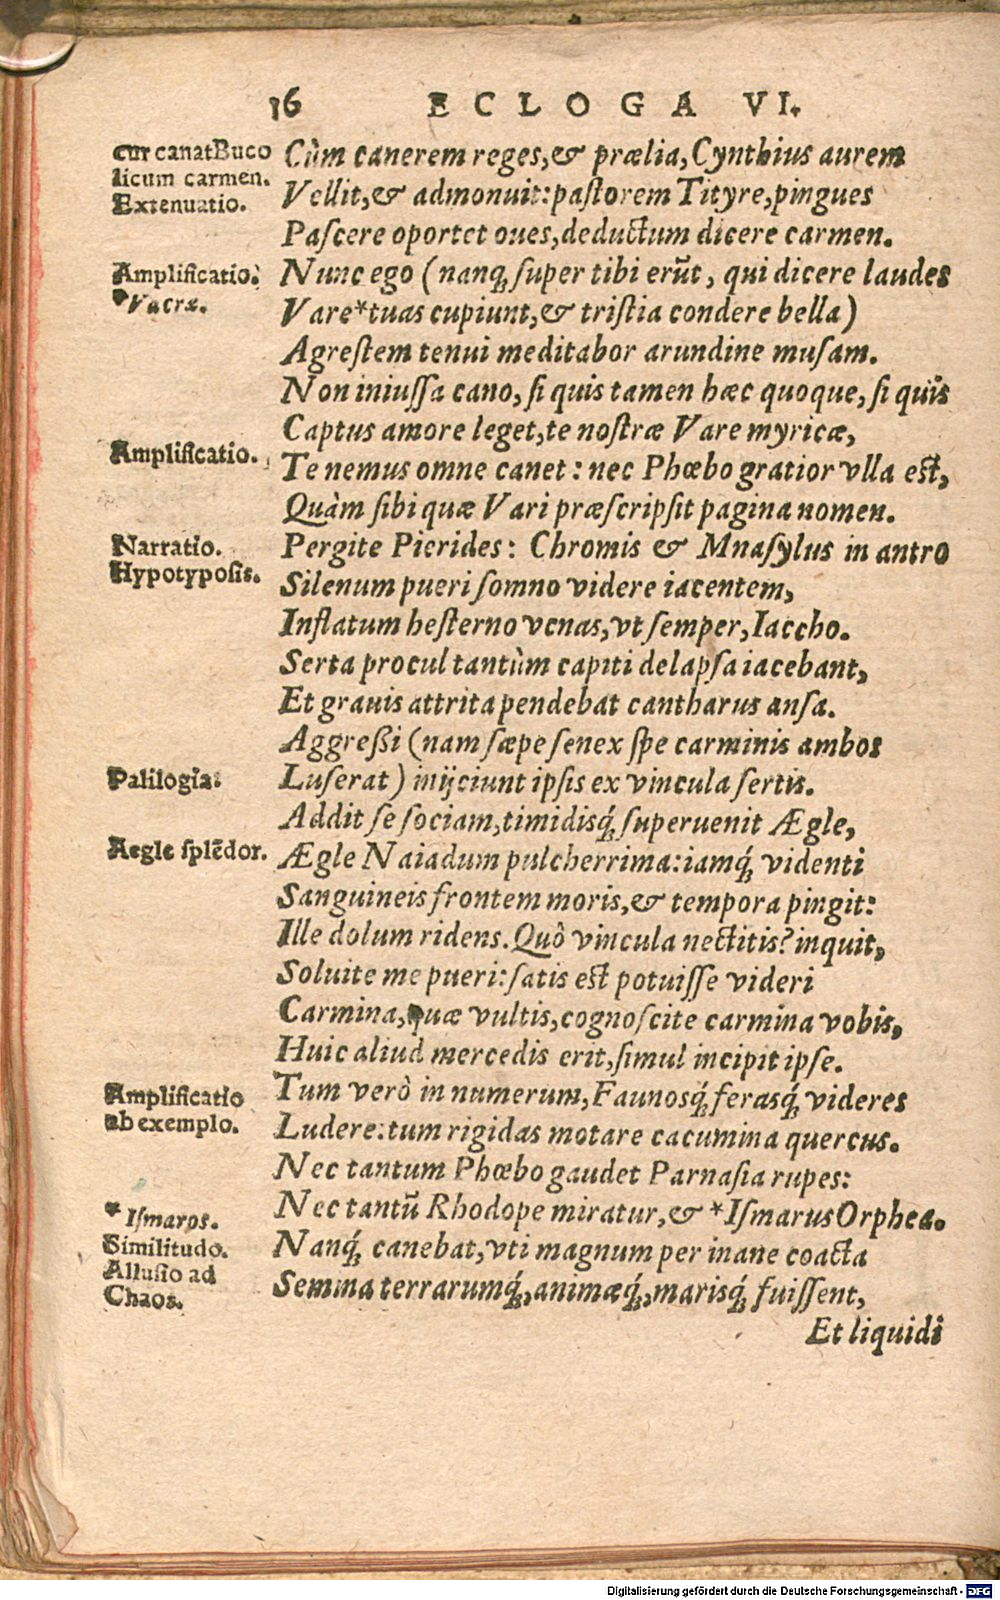 16 ECLOGA VI.
cur canat Buco
licum carmen.
Extenuatio.
Cùm canerem reges, & prælia, Cynthius aurem
Vellit, & admonuit: paſtorem Tityre, pingues
Paſcere oportet oues, deductum dicere carmen.
Amplificatio.
*Vacræ.
Nunc ego (nanq; ſuper tibi erūt, qui dicere laudes
Vare*tuas cupiunt, & triſtia condere bella)
Agreſtem tenui meditabor arundine muſam.
Non iniuſſa cano, ſi quis tamen hæc quoque, ſi quis
Captus amore leget, te noſtræ Vare myricæ,
Amplificatio.
Te nemus omne canet: nec Phœbo gratior vlla eſt,
Quàm ſibi quæ Vari præſcripſit pagina nomen.
Narratio.
Hypotypoſis.
Pergite Pierides: Chromis & Mnaſylus in antro
Silenum pueri ſomno videre iacentem,
Inflatum heſterno venas, vt ſemper, Iaccho.
Serta procul tantùm capiti delapſa iacebant,
Et grauis attrita pendebat cantharus anſa.
Aggreßi (nam ſæpe ſenex ſpe carminis ambos
Palilogia:
Luſerat) inijciunt ipſis ex vincula ſertis.
Addit ſe ſociam, timidisq́; ſuperuenit Ægle,
Aegle ſplēdor.
Ægle Naiadum pulcherrima: iamq́; videnti
Sanguineis frontem moris, & tempora pingit:
Ille dolum ridens. Quò vincula nectitis? inquit,
Soluite me pueri: ſatis eſt potuiſſe videri
Carmina, quæ vultis, cognoſcite carmina vobis,
Huic aliud mercedis erit, ſimul incipit ipſe.
Amplificatio
ab exemplo.
Tum verò in numerum, Faunosq́; ferasq́; videres
Ludere: tum rigidas motare cacumina quercus.
Nec tantum Phœbo gaudet Parnaſia rupes:
*Iſmaros.
Similitudo.
Alluſio ad
Chaos.
Nec tantū Rhodope miratur, & *Iſmarus Orphea.
Nanq́; canebat, vti magnum per inane coacta
Semina terrarumq́;, animæq́;, marisq́; fuiſſent,
Et liquidi
Digitalisierung gefördert durch die Deutsche Forschungsgemeinschaft - DFG